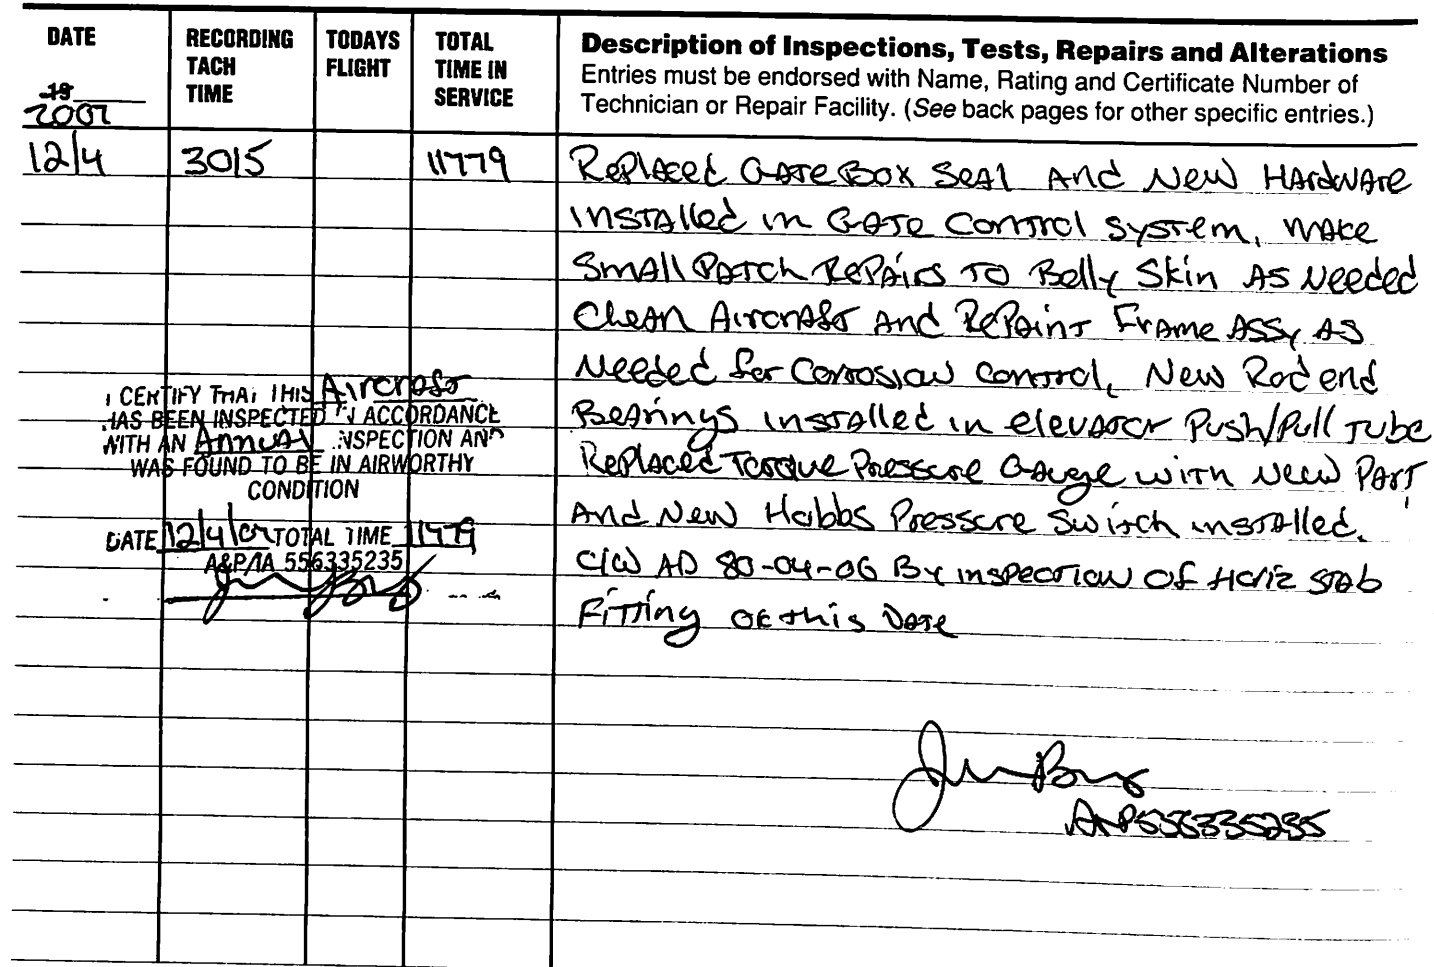 DATE
19
2007
RECORDING
TACH
TIME
TODAYS
FLIGHT
TOTAL
TIME IN
SERVICE
Description of Inspections, Tests, Repairs and Alterations
Entries must be endorsed with Name, Rating and Certificate Number of
Technician or Repair Facility. (See back pages for other specific entries.)
12/4 3015 11779 Replaced Gate Box Seal And New Hardware
installed in Gate Control system, make
Small Patch Repairs To Belly Skin As Needed
Clean Aircraft And RePaint Frame Assy As
Needed for Corrosion Control, New Rod end
Bearings installed in elevator Push/Pull Tube
Replaced Torque Pressure Gauge with New Part
And New Hobbs Pressure Switch installed.
C/W AD 80-04-06 By inspection Of Horiz stab
Fitting OK this Date
I CERTIFY THAT THIS Aircraft
HAS BEEN INSPECTED IN ACCORDANCE
WITH AN Annual INSPECTION AND
WAS FOUND TO BE IN AIRWORTHY
CONDITION
DATE 12/4/07 TOTAL TIME 11779
A&P/IA 556335235
A&P 556335235